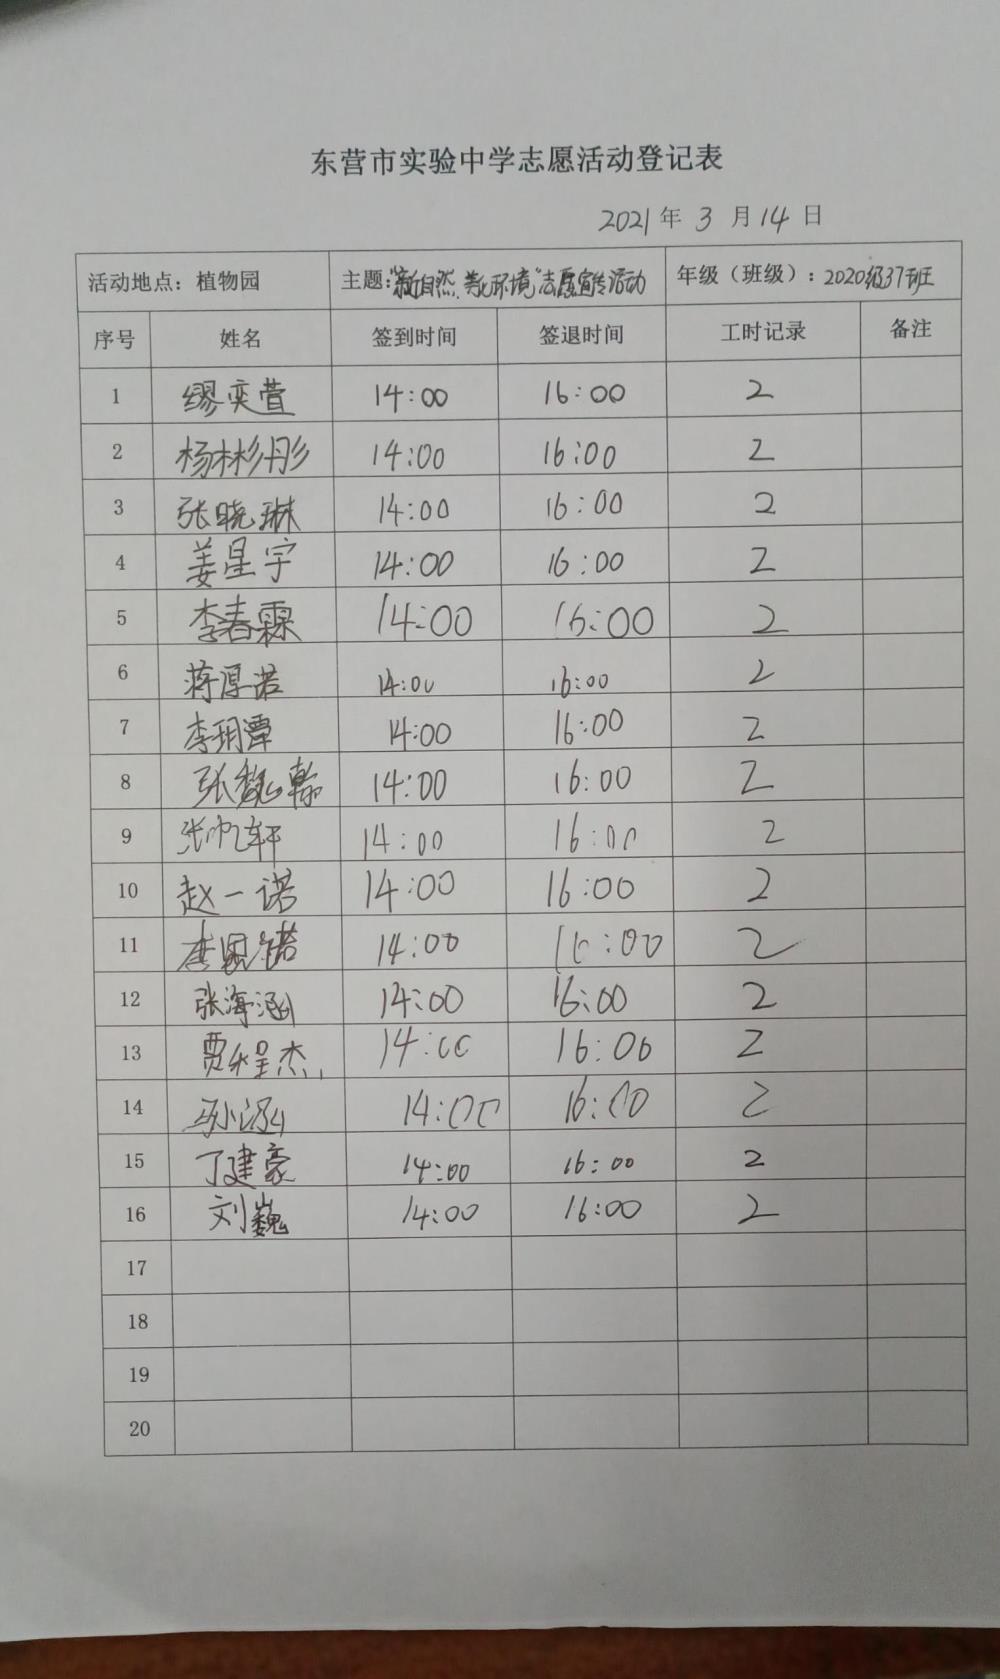 东营市实验中学志愿活动登记表
2021年 3 月 14 日
活动地点：植物园 主题：“亲近自然、美化环境”志愿宣传活动 年级（班级）：2020级37班
序号 姓名 签到时间 签退时间 工时记录 备注
1 缪奕萱 14:00 16:00 2
2 杨林彬彤 14:00 16:00 2
3 张晓琳 14:00 16:00 2
4 姜星宇 14:00 16:00 2
5 李春霖 14:00 16:00 2
6 蒋厚诺 14:00 16:00 2
7 李玥潭 14:00 16:00 2
8 张魏翰 14:00 16:00 2
9 张帆轩 14:00 16:00 2
10 赵一诺 14:00 16:00 2
11 李 诺 14:00 16:00 2
12 张海涵 14:00 16:00 2
13 贾 程杰 14:00 16:00 2
14 孙涵 14:00 16:00 2
15 丁建豪 14:00 16:00 2
16 刘巍 14:00 16:00 2
17
18
19
20